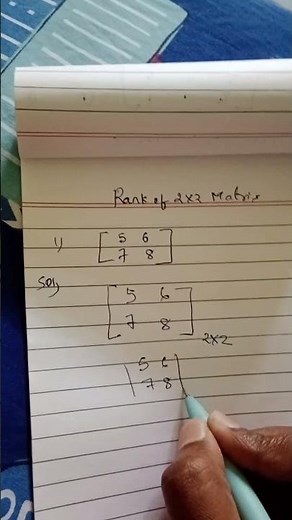 Rank of 2x2 Matrix
1) [ 5 6
7 8 ]
Sol) [ 5 6
7 8 ] 2x2
| 5 6 |
| 7 8 |